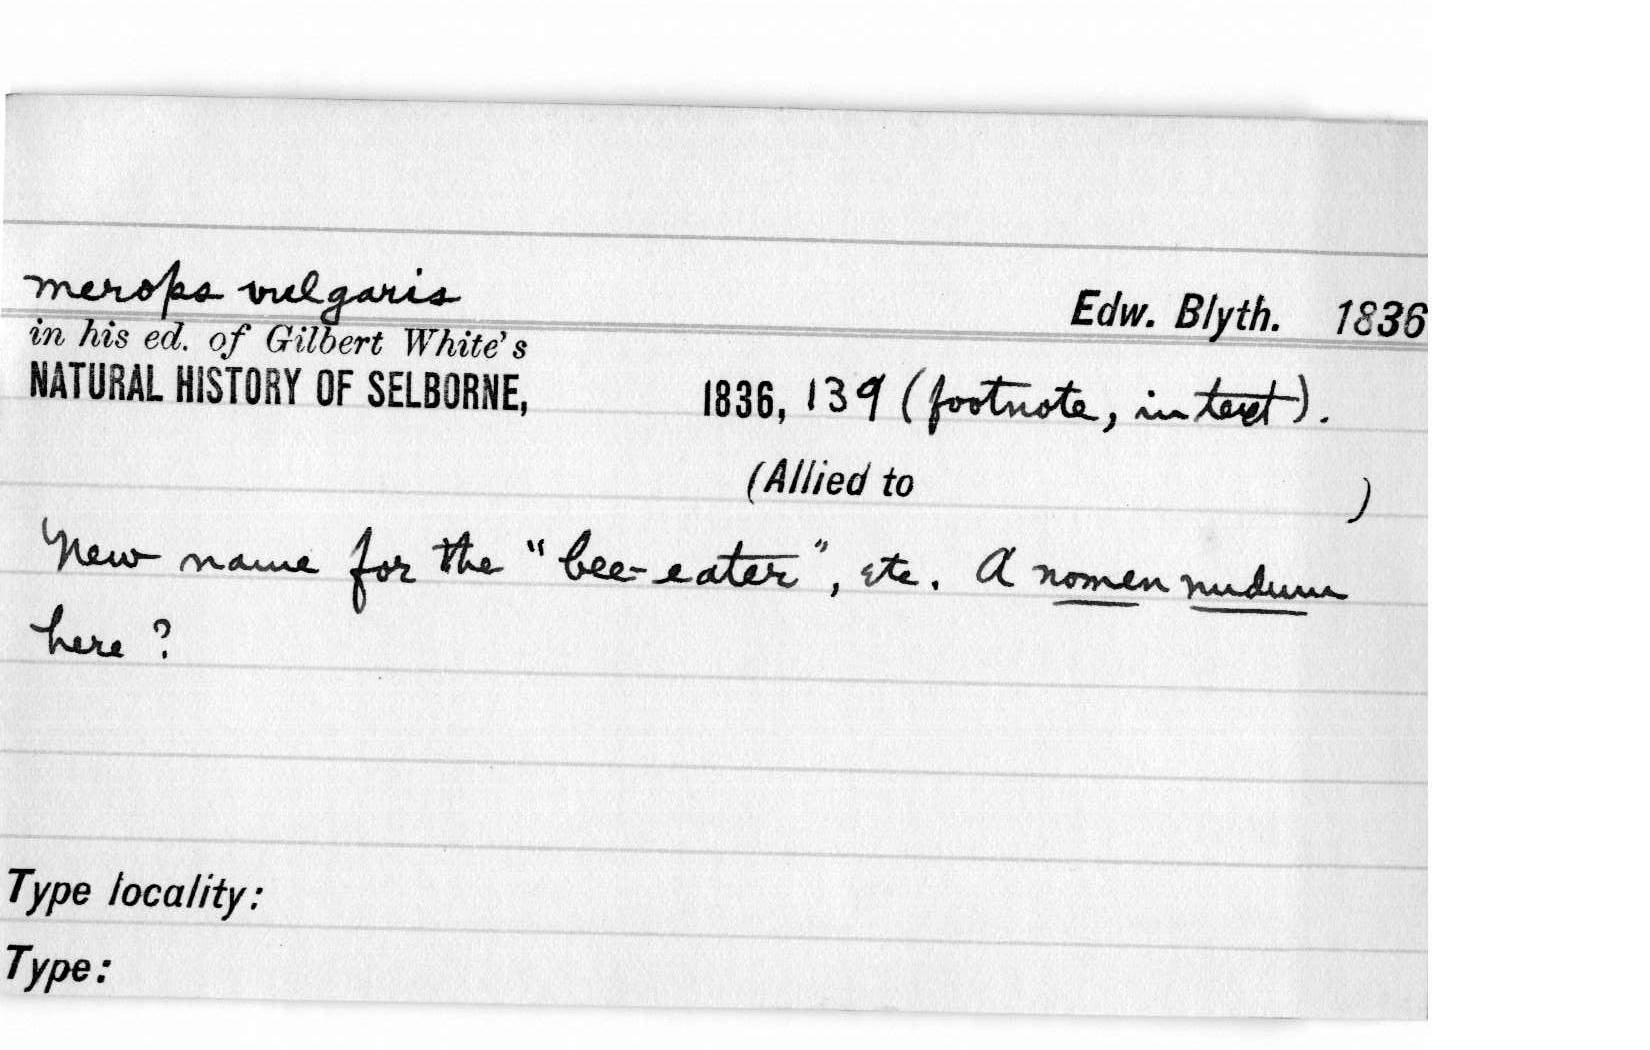 merops vulgaris
Edw. Blyth. 1836
in his ed. of Gilbert White's
NATURAL HISTORY OF SELBORNE, 1836, 139 (footnote, in text).
(Allied to )
New name for the "bee-eater", etc. A nomen nudum
here?
Type locality:
Type: